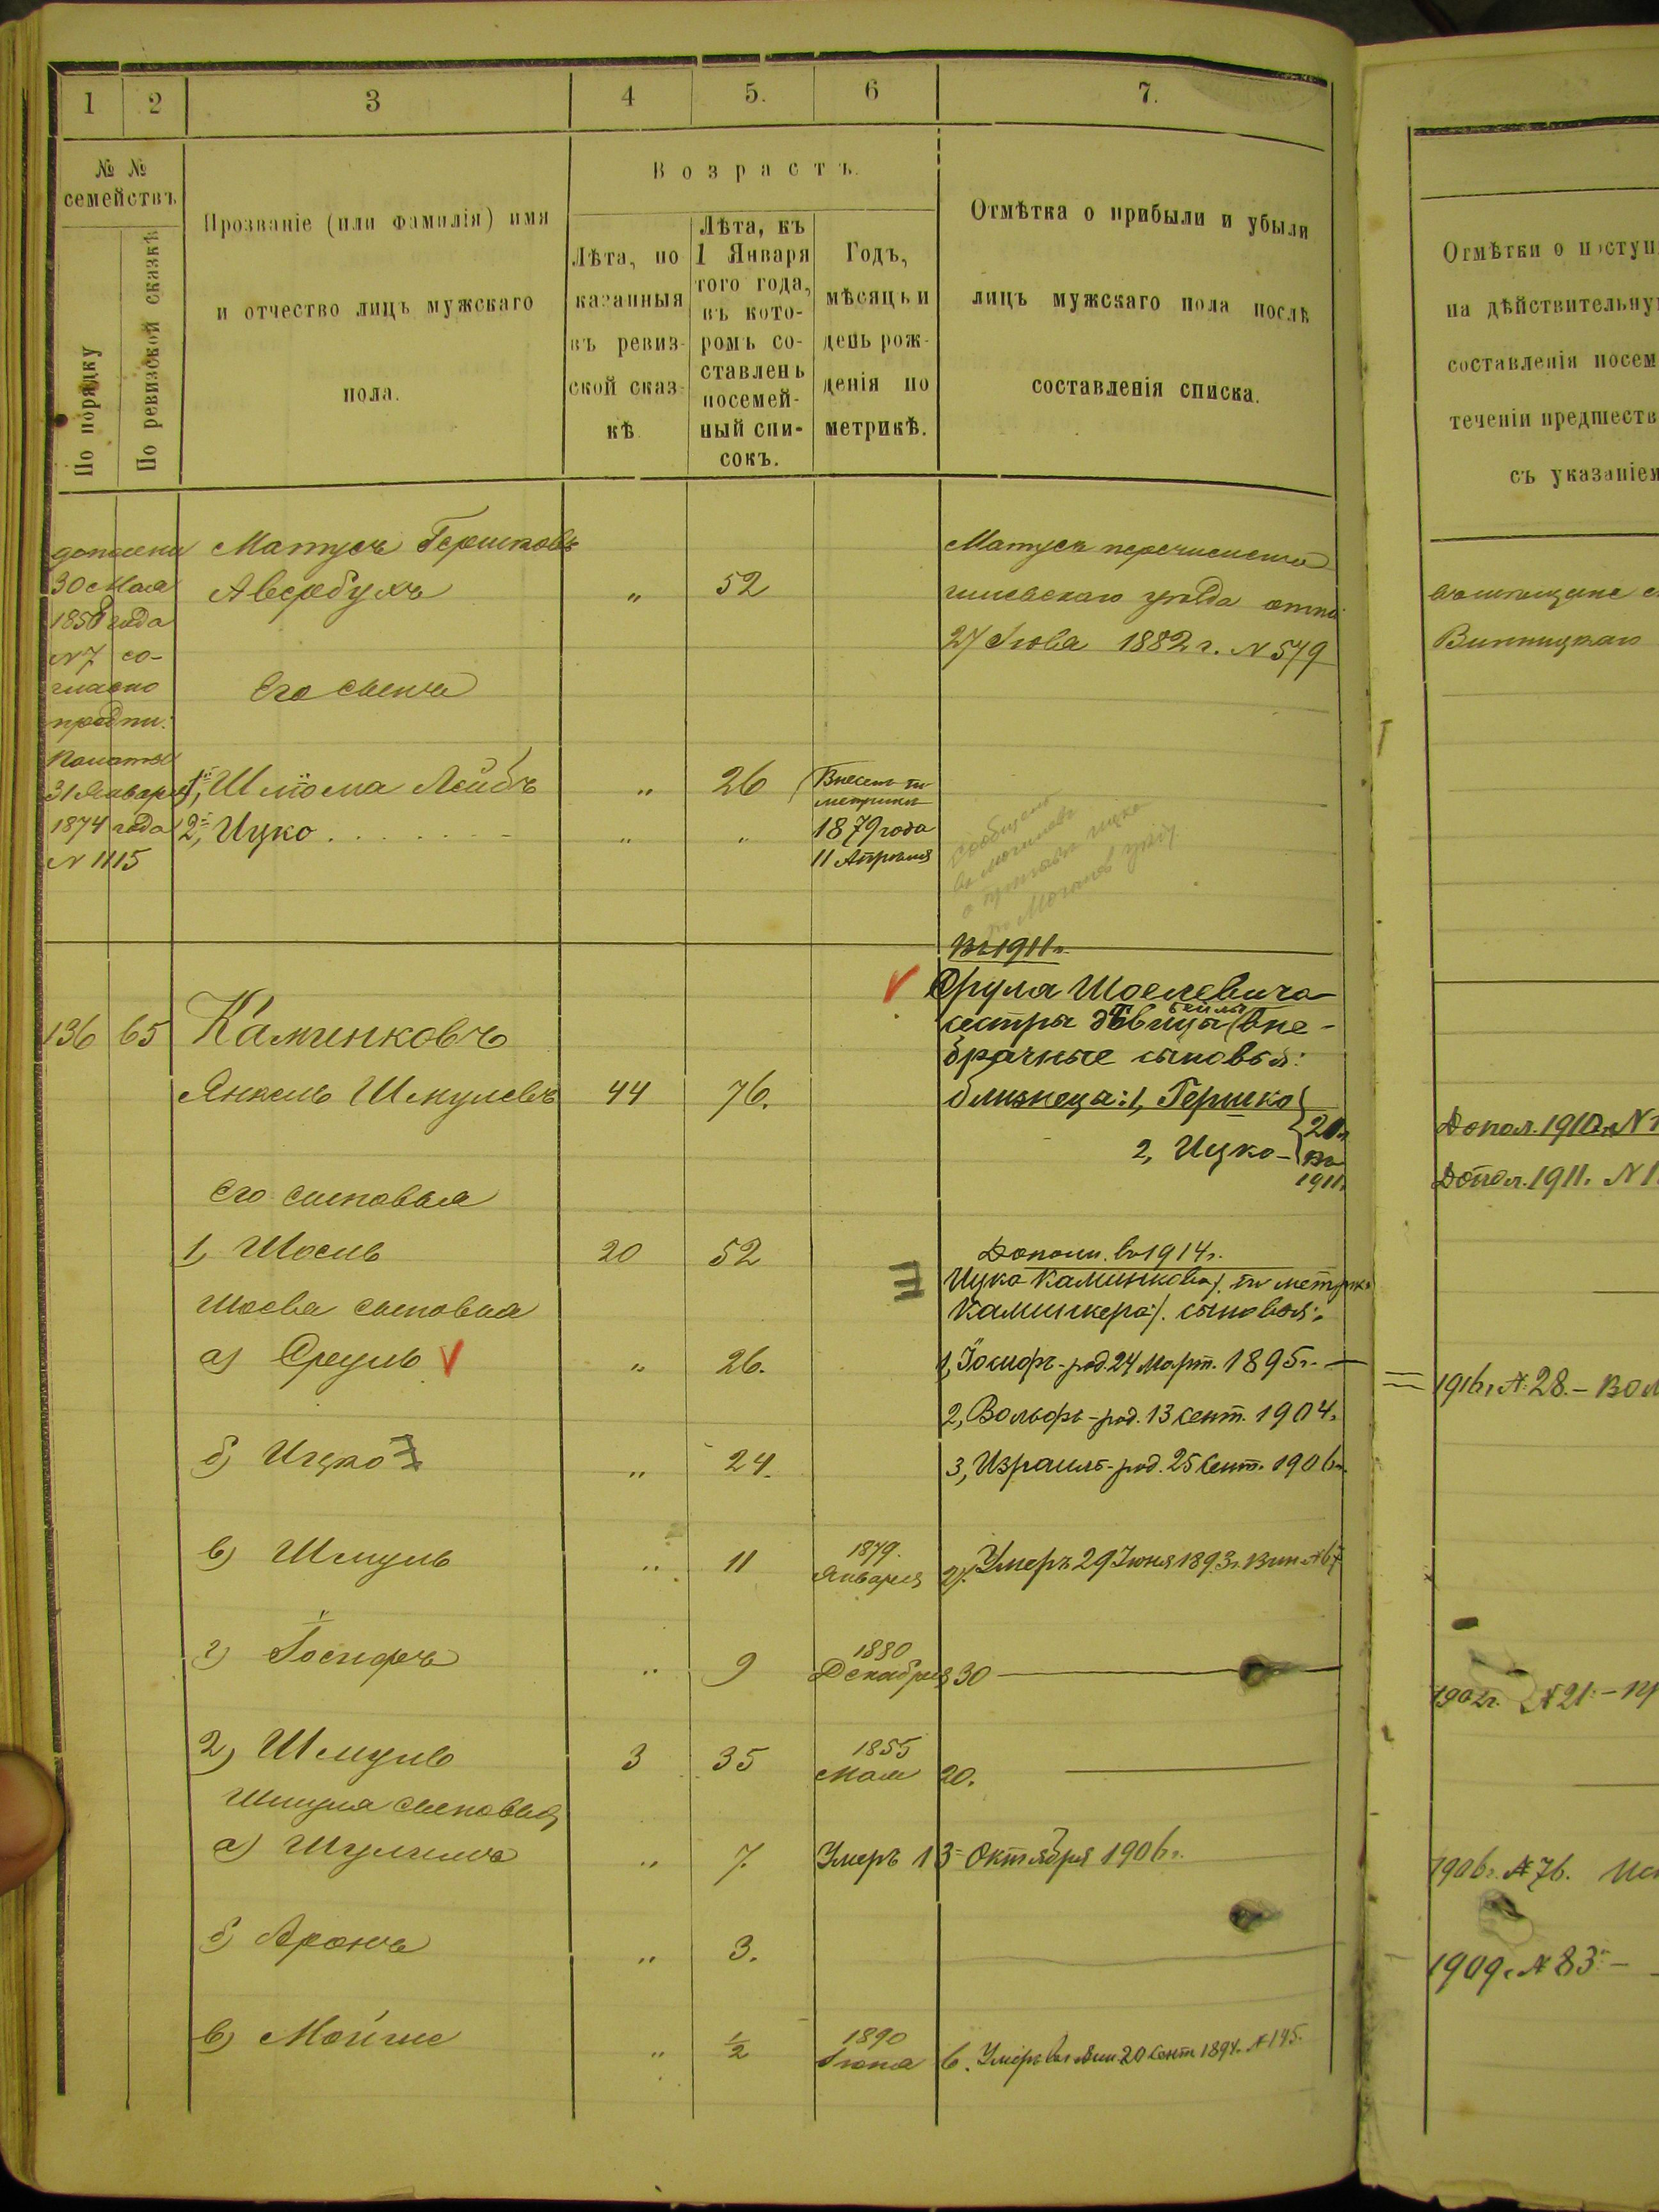 1
2
3
4
5.
6
7.
№ №
семействъ
По порядку
По ревизской сказкѣ
Прозваніе (или фамилія) имя
и отчество лицъ мужскаго
пола.
Возрастъ.
Лѣта, по
казанныя
въ ревиз-
ской сказ-
кѣ
Лѣта, къ
1 Января
того года,
въ кото-
ромъ со-
ставленъ
посемей-
ный спи-
сокъ.
Годъ,
мѣсяцъ и
день рож-
денія по
метрикѣ.
Отмѣтка о прибыли и убыли
лицъ мужскаго пола послѣ
составленія списка.
30 Мая
1858 года
№ 7 со-
гласно
предпи:
Палаты
31 Января
1874 года
№ 1115
Матусъ Гершковъ
Авербухъ
"
52
Матусъ перечисленъ
уѣзда
27 1882 г. № 579
Его сынъ
1, Шлёма Лейбъ
"
26
метрики
2, Ицко
"
"
1879 года
11 Апрѣля
Въ 1911 г.
136
65
Каминковъ
Янкель Шмулевъ
44
76.
Сруля Шоелевича
сестры дѣвицы Бейлы вне-
брачные сыновья:
близнеца: 1, Гершко
2, Ицко -
въ
1911 г.
Его сыновья
1, Шоель
20
52
Дополн. въ 1914 г.
Шоеля сыновья
Ицко Каминкова /. по метрик.
Каминкера /. сыновья:
а) Сруль
"
26.
1, Іосифъ - род. 24 Март. 1895 г. -
2, Вольфъ - род. 13 Сент. 1904 г.
б) Ицко
"
24.
3, Израиль - род. 25 Сент. 1906 г.
в) Шмуль
"
11
1879.
Января
27. Умеръ 29 Іюня 1893 г. Вин № 67
г) Іосифъ
"
9
1880
Декабря 30
2) Шмуль
3
35
1855
Мая 20.
Шмуля сыновья
а) Шулимъ
"
7.
Умеръ 13 Октября 1906 г.
б) Аронъ
"
3.
в) Мойше
"
½
1890
Іюня 6. Умеръ въ Вин 20 Сент 1894 г. № 145.
Отмѣтки о поступ
на дѣйствительну
составленія посем
теченіи предшеств
съ указаніем
Винницкаго
Допол. 1910 г. №
Допол. 1911. №
1916 г. № 28. -
1902 г. № 21 -
1906 г. № 76.
1909 г. № 83 -